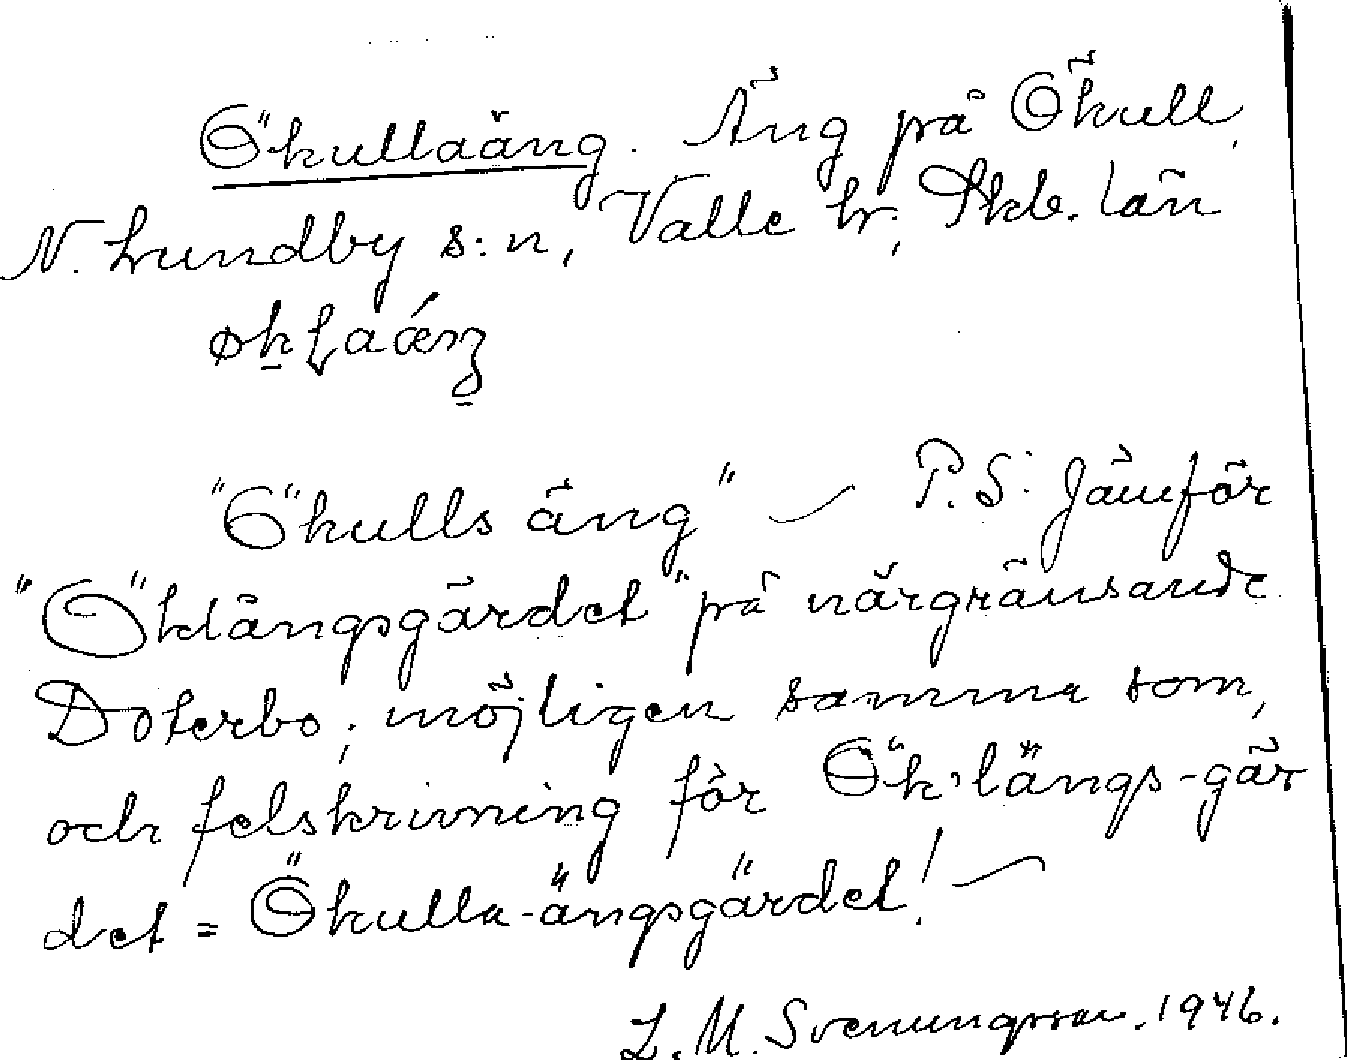 Ökullaäng. Äng på Ökull,
N. Lundby s:n, Valle hr; Skb. län
"Ökulls äng" — P.S: Jämför
"Öklängsgärdet" på närgränsande
Doterbo; möjligen samma som,
och felskrivning för Ök'längs-gär
det = Ökulla-ängsgärdet! —
L. M. Svenungsson. 1946.